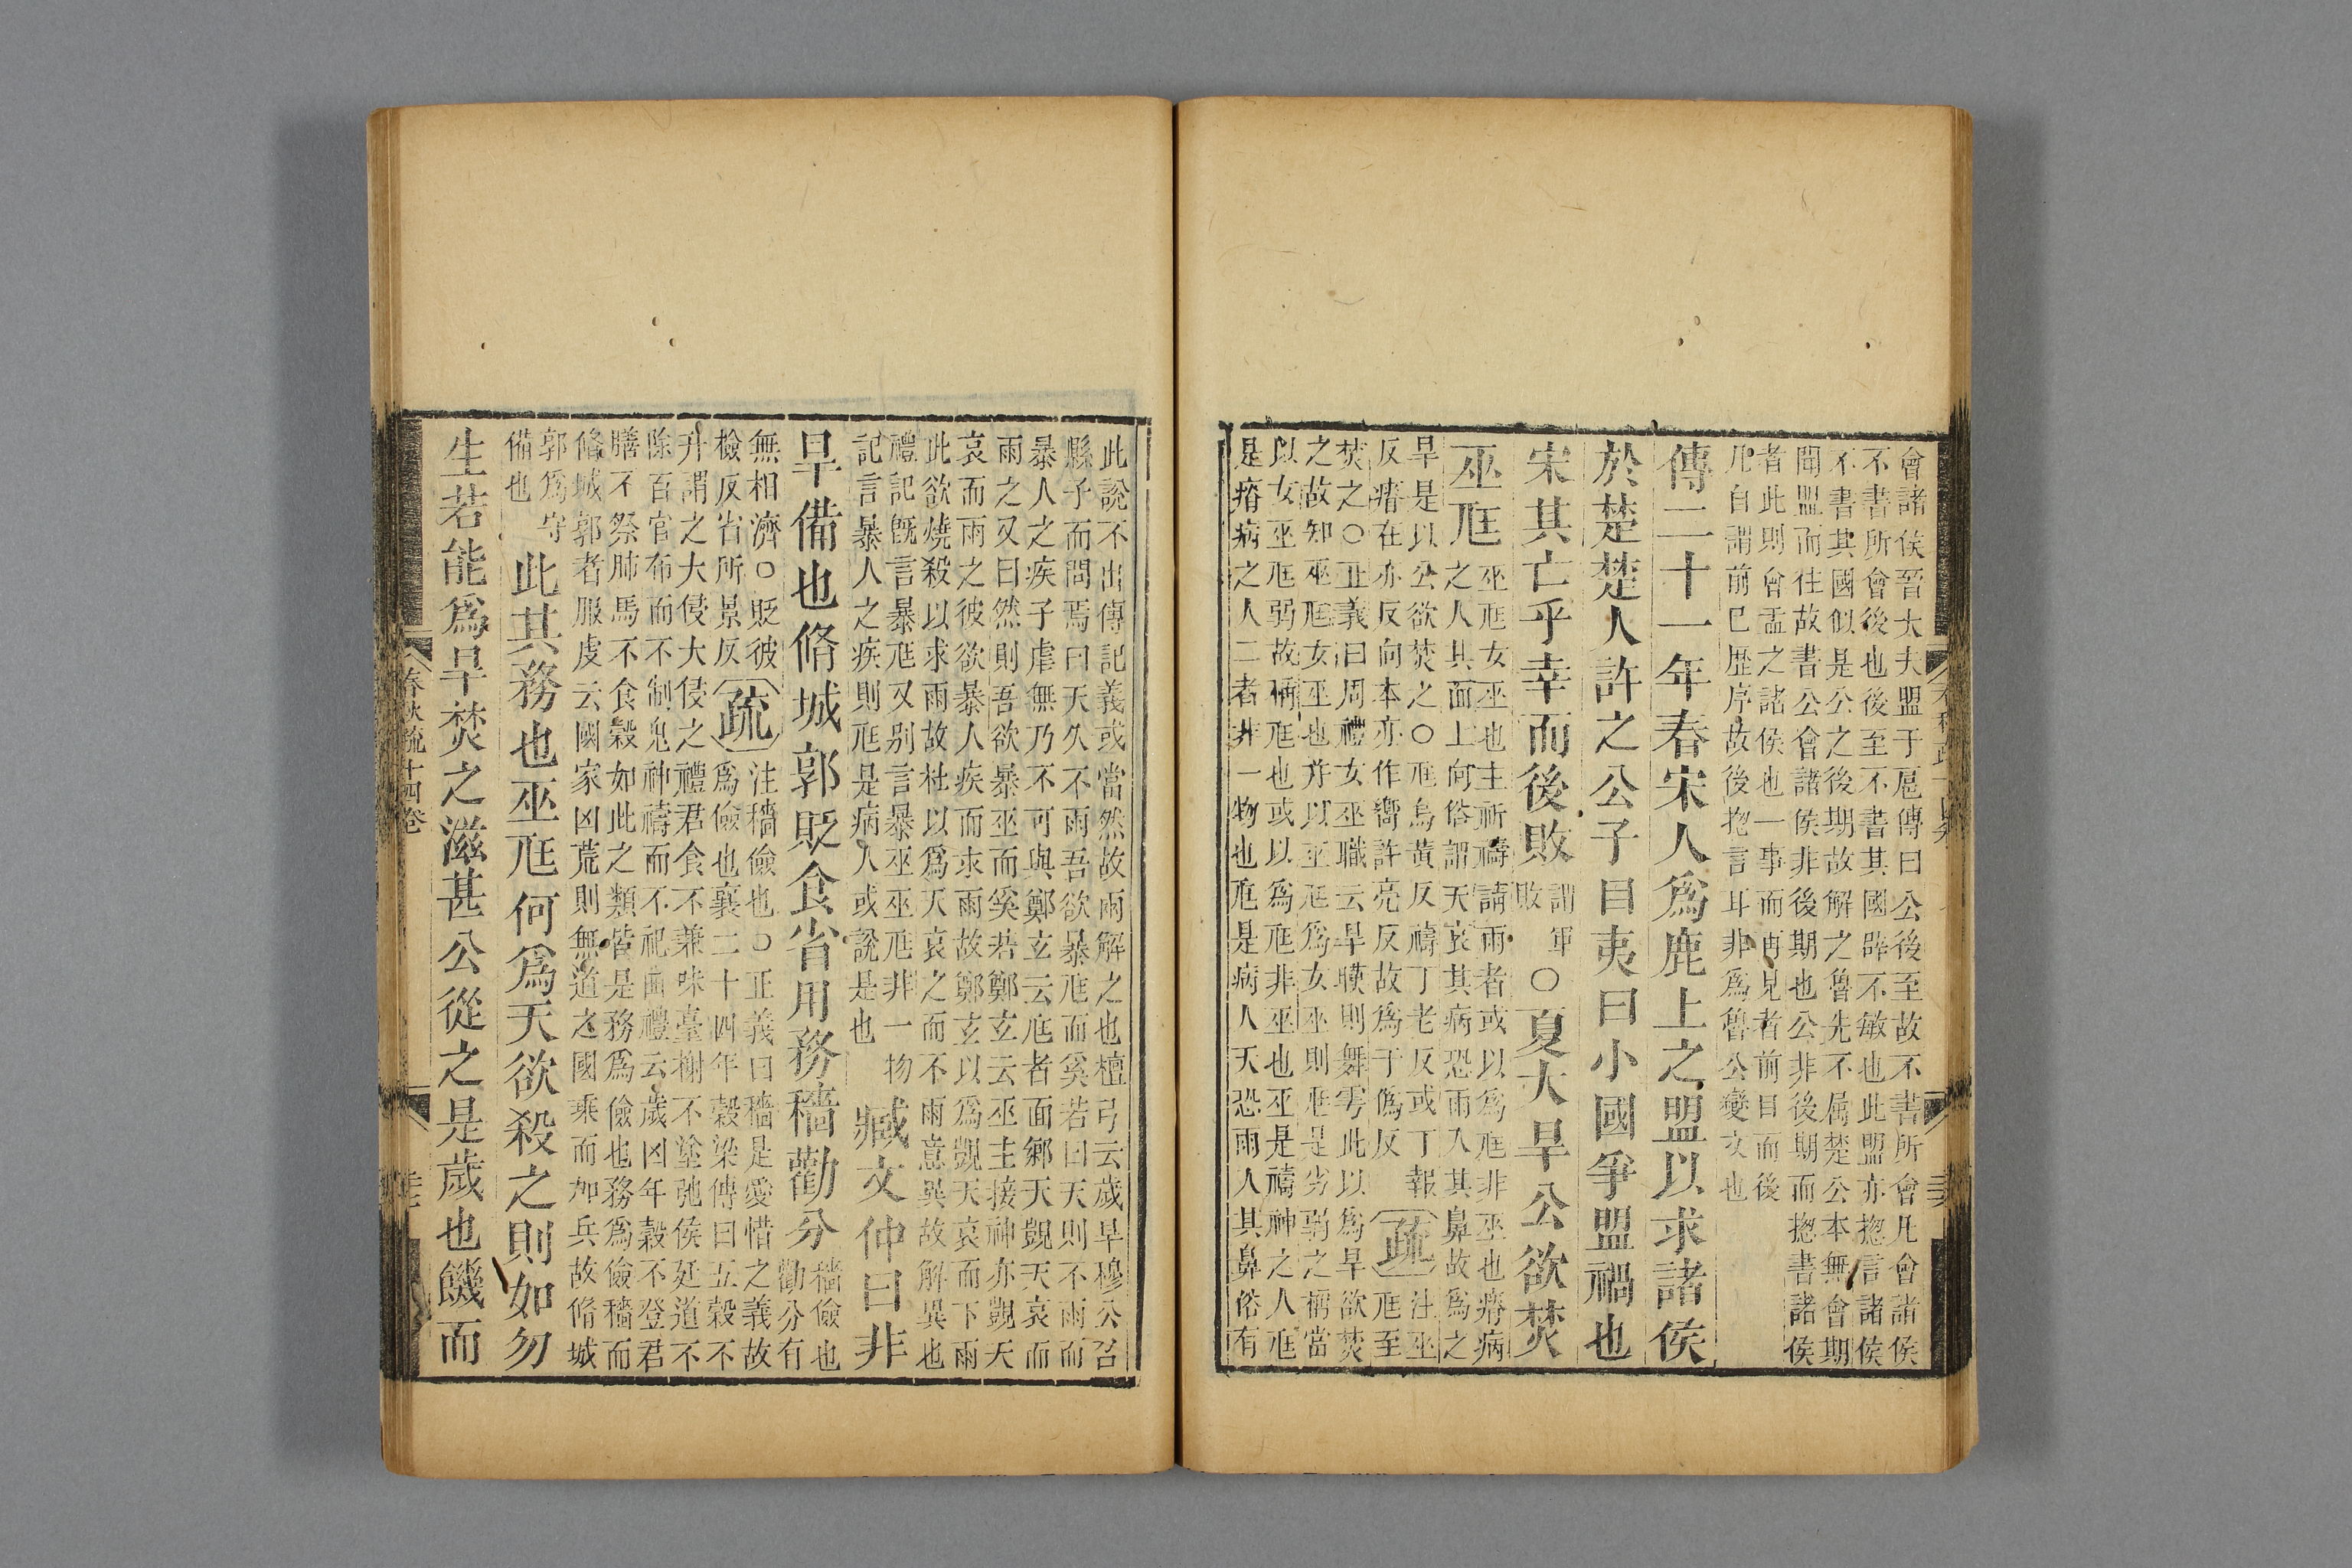 會諸侯晉大夫盟于扈傳曰公後至故不書所會凡會諸侯
不書所會後也後至不書其國辟不敏也此盟亦揔言諸侯
不書其國似是公之後期故解之魯先不屬楚公本無會期
聞盟而往故書公會諸侯非後期也公非後期而揔書諸侯
者此則會盂之諸侯也一事而再見者前目而後
凡自謂前已歷序故後揔言耳非爲魯公變文也
傳二十一年春宋人爲鹿上之盟以求諸侯
於楚楚人許之公子目夷曰小國爭盟禍也
宋其亡乎幸而後敗
謂軍
敗
○夏大旱公欲焚
巫尫
巫尫女巫也主祈禱請雨者或以爲尫非巫也瘠病
之人其面上向俗謂天哀其病恐雨入其鼻故爲之
旱是以公欲焚之○尫烏黃反禱丁老反或丁報
反瘠在亦反向本亦作嚮許亮反故爲于僞反
疏
注巫
尫至
焚之○正義曰周禮女巫職云旱暵則舞雩此以爲旱欲焚
之故知巫尫女巫也幷以巫尫爲女巫則尫是劣弱之稱當
以女巫尫弱故稱尫也或以爲尫非巫也巫是禱神之人尫
是瘠病之人二者非一物也尫是病人天恐雨入其鼻俗有
此說不出傳記義或當然故兩解之也檀弓云歲旱穆公召
縣子而問焉曰天久不雨吾欲暴尫而奚若曰天則不雨而
暴人之疾子虐無乃不可與鄭玄云尫者面鄉天覬天哀而
雨之又曰然則吾欲暴巫而奚若鄭玄云巫主接神亦覬天
哀而雨之彼欲暴人疾而求雨故鄭玄以爲覬天哀而下雨
此欲燒殺以求雨故杜以爲天哀之而不雨意異故解異也
禮記旣言暴尫又別言暴巫巫尫非一物
記言暴人之疾則尫是病人或說是也
臧文仲曰非
旱備也脩城郭貶食省用務穡勸分
穡儉也
勸分有
無相濟○貶彼
檢反省所景反
疏
注穡儉也○正義曰穡是愛惜之義故
爲儉也襄二十四年穀梁傳曰五穀不
升謂之大侵大侵之禮君食不兼味臺榭不塗弛侯廷道不
除百官布而不制鬼神禱而不祀曲禮云歲凶年穀不登君
膳不祭肺馬不食穀如此之類皆是務爲儉也務爲儉穡而
脩城郭者服虔云國家凶荒則無道之國乘而加兵故脩城
郭爲守
備也
此其務也巫尫何爲天欲殺之則如勿
生若能爲旱焚之滋甚公從之是歲也饑而
春秋疏十四卷